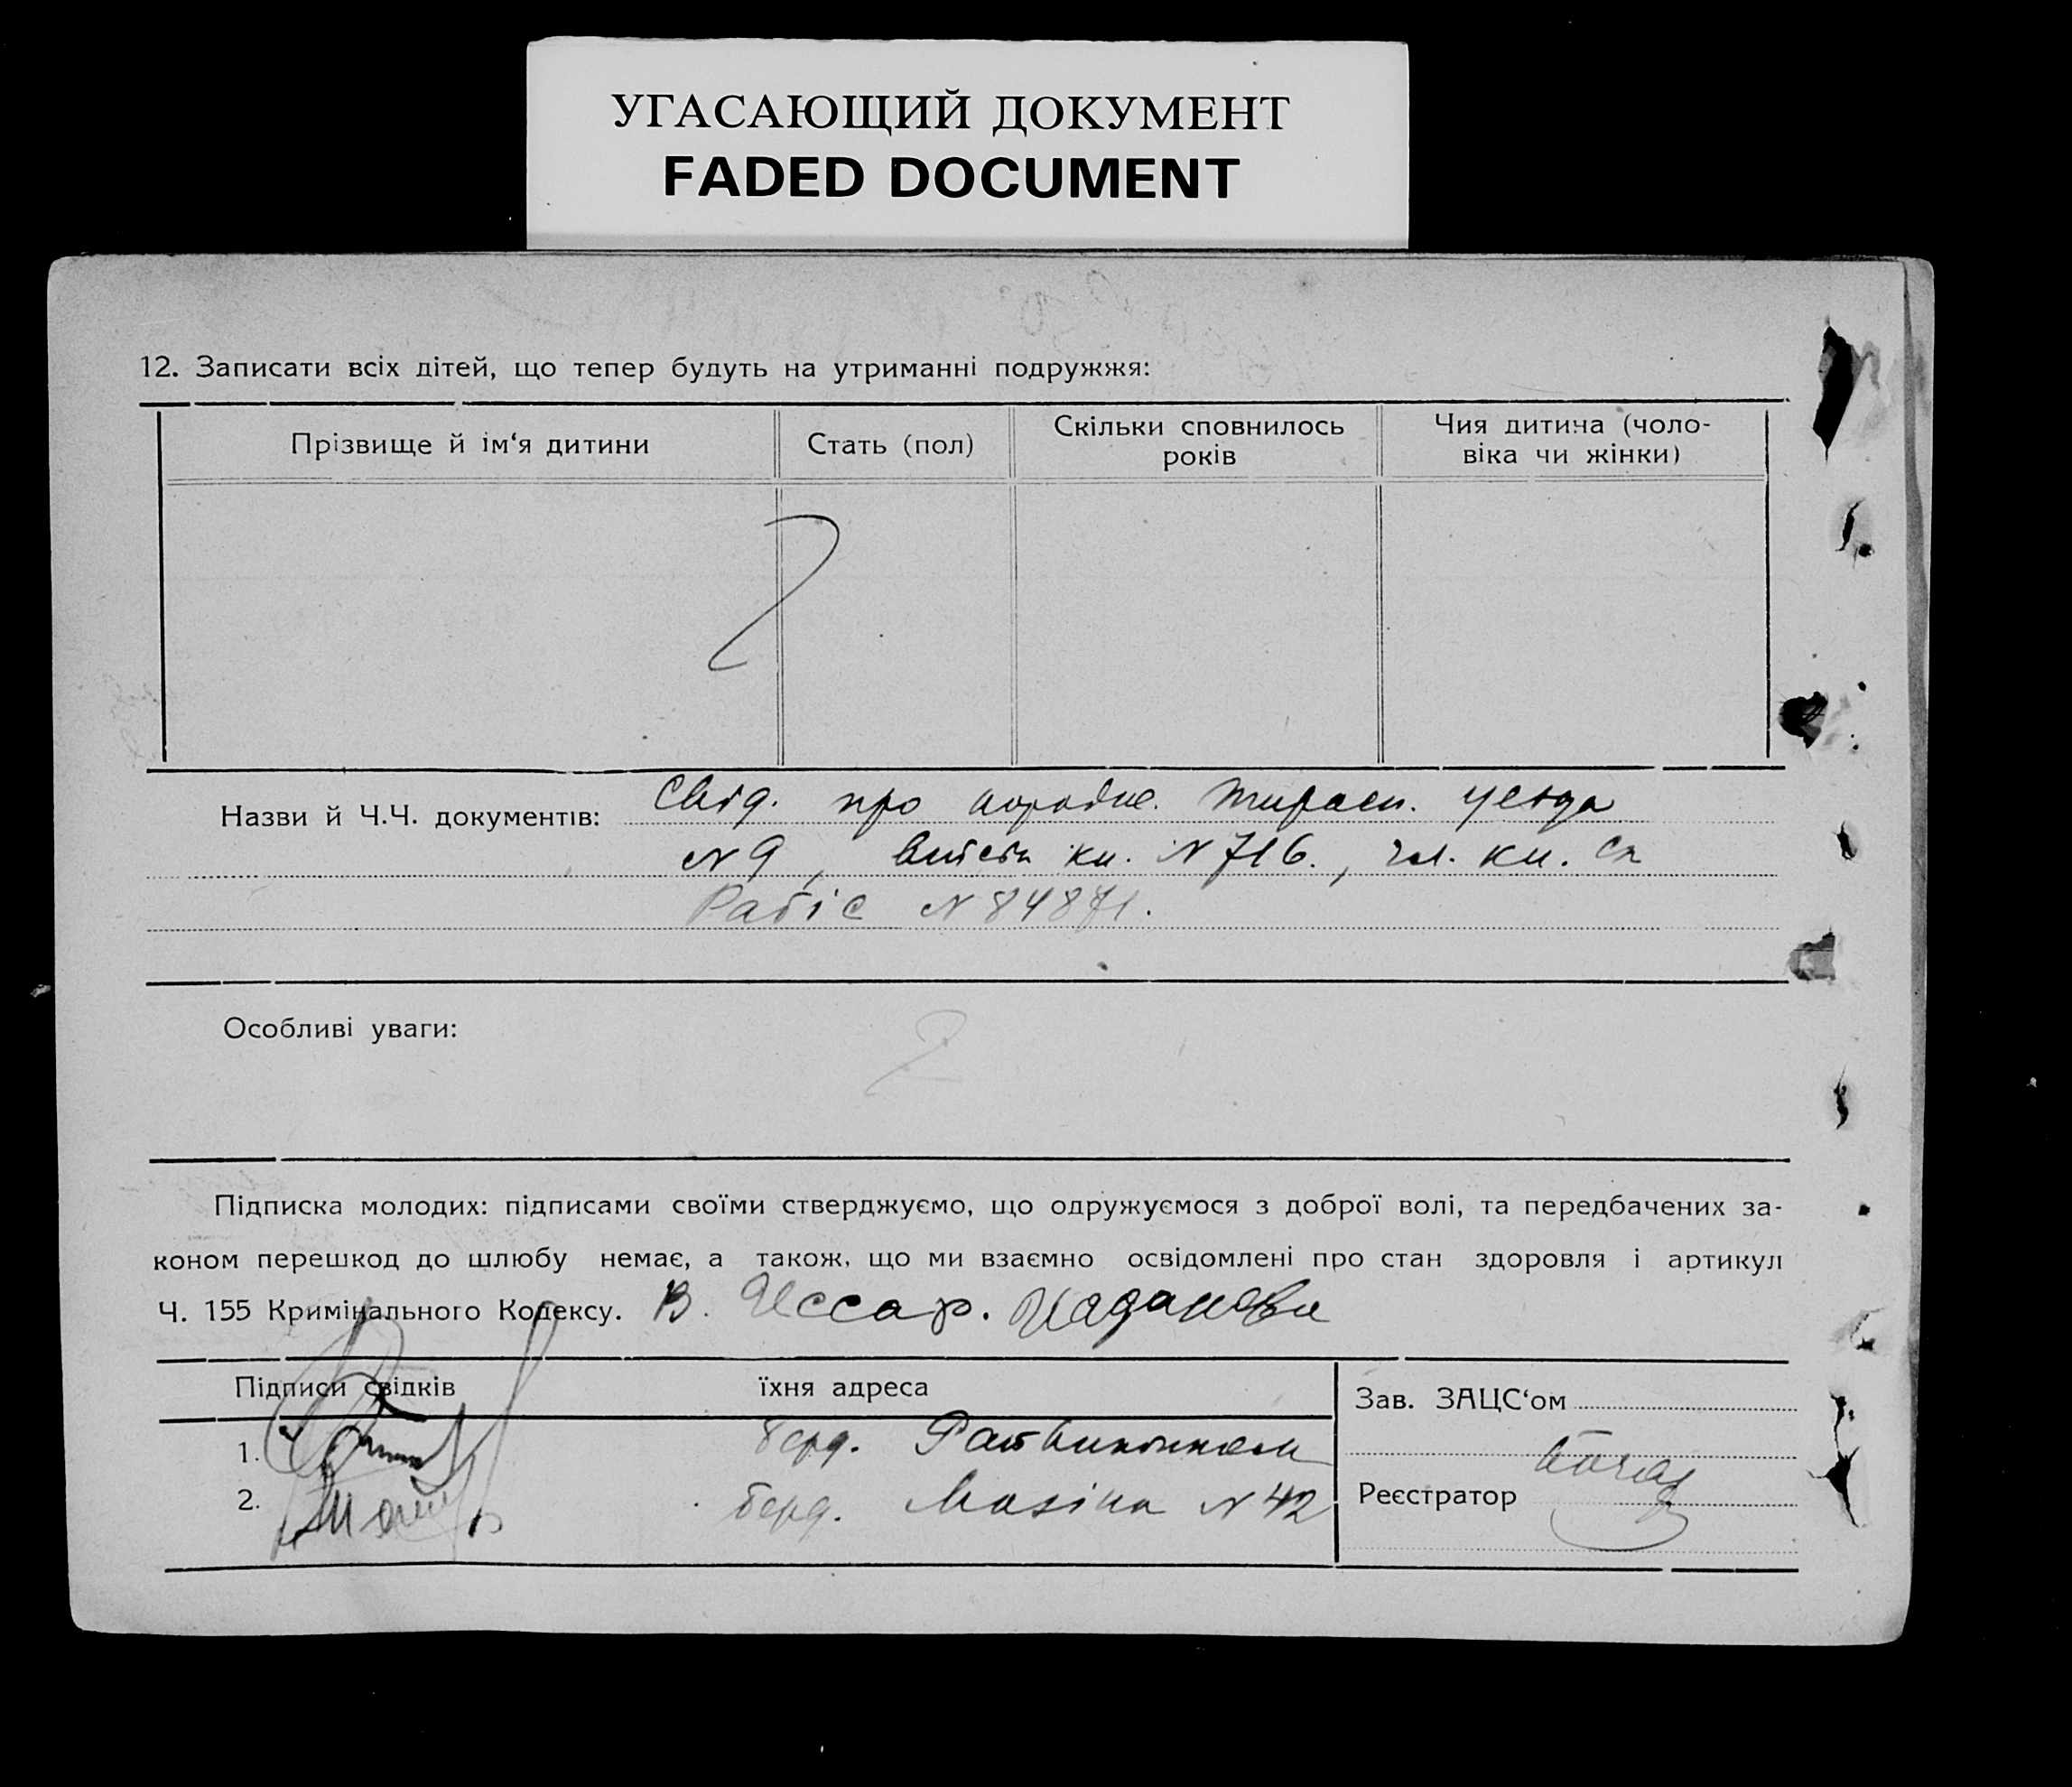 УГАСАЮЩИЙ ДОКУМЕНТ
FADED DOCUMENT
12. Записати всіх дітей, що тепер будуть на утриманні подружжя:
Прізвище й ім‘я дитини
Стать (пол)
Скільки сповнилось
років
Чия дитина (чоло-
віка чи жінки)
Назви й Ч.Ч. документів: Свід. про Тирасп. уезда
N 9, кн. N 716., чл. кн. Сп
Рабіс N 84871.
Особливі уваги:
Підписка молодих: підписами своїми стверджуємо, що одружуємося з доброї волі, та передбачених за-
коном перешкод до шлюбу немає, а також, що ми взаємно освідомлені про стан здоровля і артикул
Ч. 155 Кримінального Кодексу. В. Иссар.
Підписи свідків
їхня адреса
Зав. ЗАЦС‘ом
1.
2.
N 42
Реєстратор